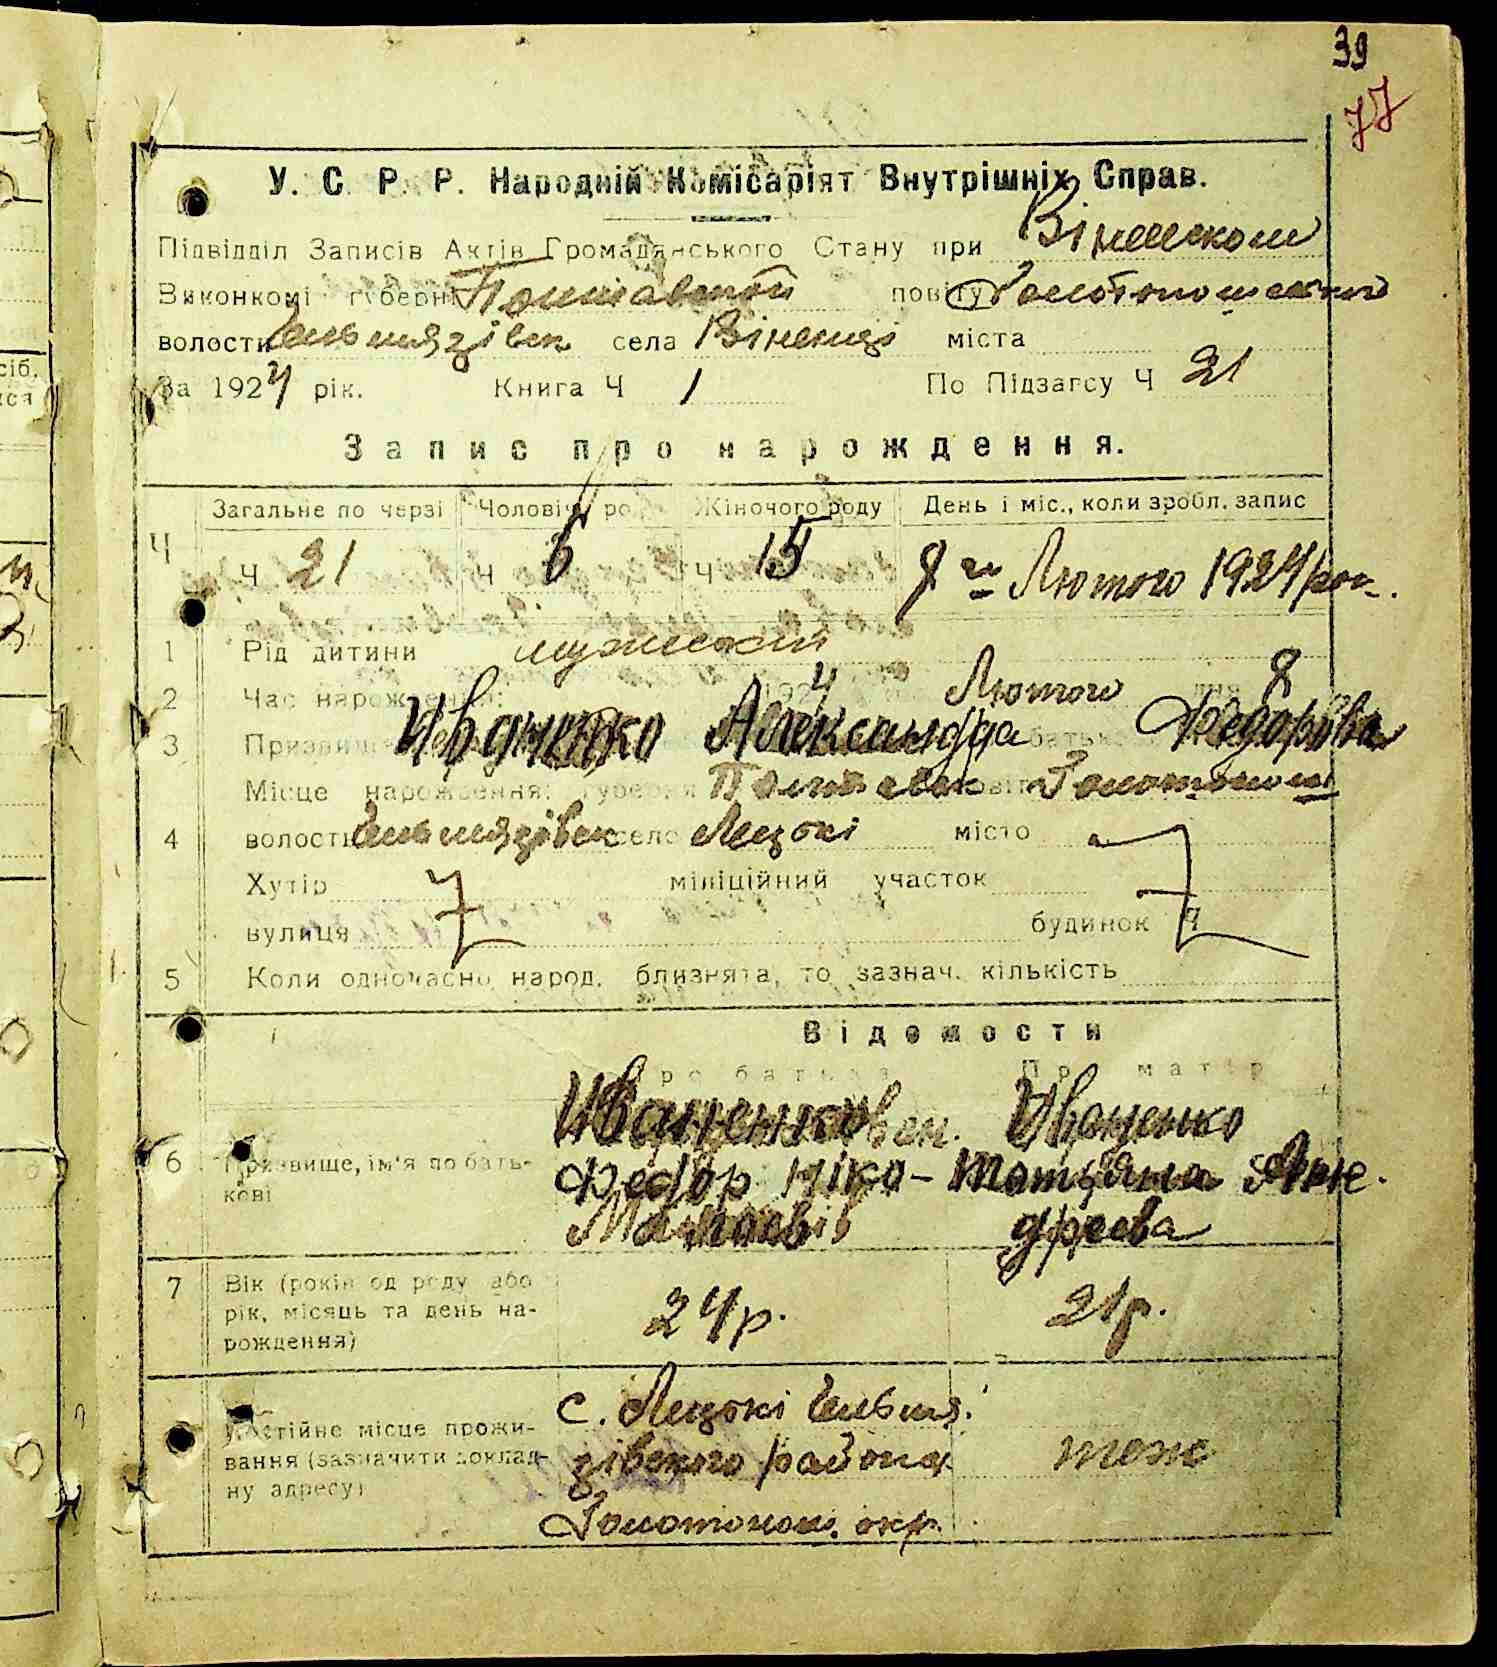 39
77
У. С. Р. Р. Народній Комісаріят Внутрішніх Справ.
Підвідділ Записів Актів Громадянського Стану при Віненском
Виконкомі губерні Полтавской повіту Золотоношского
волости Гельмязівск села Віненці міста
За 1924 рік. Книга Ч 1 По Підзагсу Ч 21
Запис про нарождення.
Загальне по черзі Чоловіч. роду Жіночого роду День і міс., коли зробл. запис
Ч Ч 21 Ч 6 Ч 15 8го Лютого 1924 рок.
1 Рід дитини мужеский
2 Час нарождення: 1924 Лютого дня 8
3 Призвище Иваненко Александра батьк. Федорова
Місце нарождення: губерня Полтавск повіт Золотонош
4 волость Гельмязівск село Лецькі місто
Хутір міліційний участок
вулиця будинок Ч
5 Коли одночасно народ. близнята, то зазнач. кількість
Відомости
Про батька Про матір
6 Призвище, ім'я по бать- Иваненко Иваненко
кові Федор Ніко- Татьяна Анн-
дреева
7 Вік (років од роду або 24р. 21р.
рік, місяць та день на-
рождення)
Постійне місце прожи- с. Лецькі Гельмя-
вання (зазначити доклад- зівского района тоже
ну адресу) Золотонош. окр.